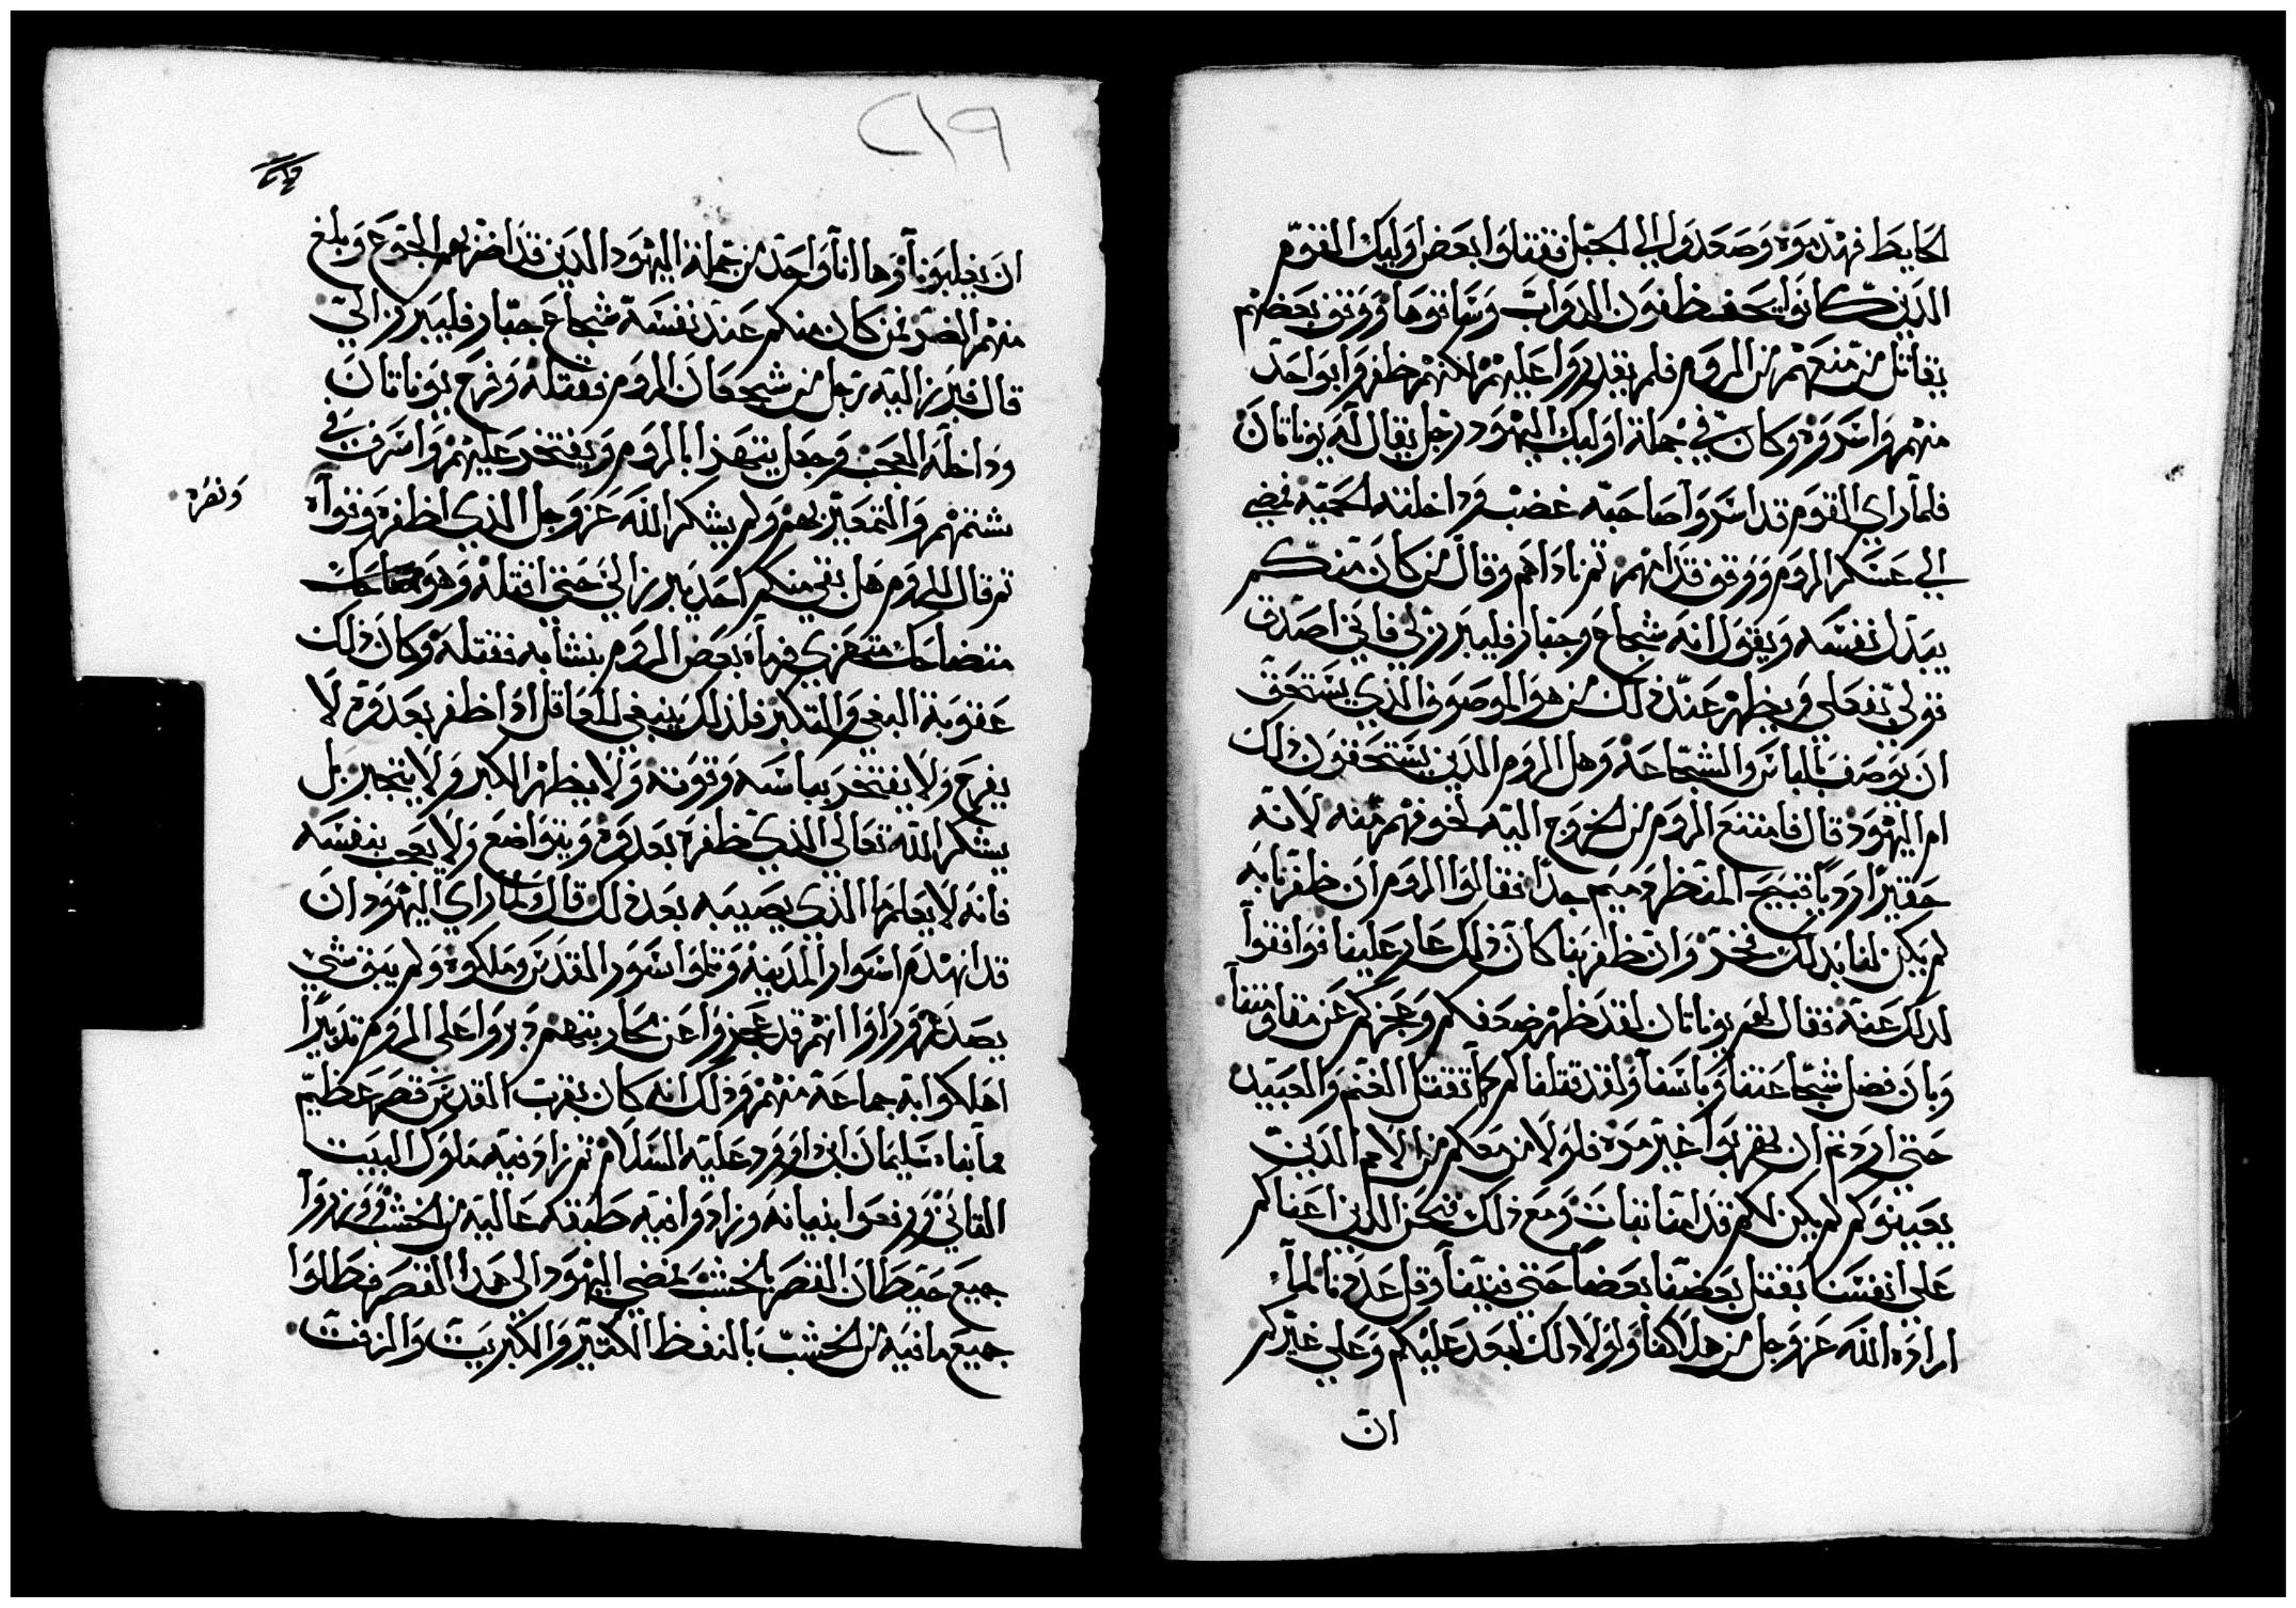 الحايط فهدموه وصعدوا الي الجبل فقتلوا بعض اوليك القوم
الذين كانوا يحفظون الدواب وساقوها ووقف بعضهم
يقاتل من منعهم من الروم فلم يقدروا عليهم لكنهم ظفروا بواحد
منهم واسروه وكان في جملة اوليك اليهود رجل يقال له يوناتان
فلما راي القوم قد اسروا صاحبه غضب وداخلته الحميه فمضي
الي عسكر الروم ووقف قدامهم ثم ناداهم وقال من كان منكم
يبدل نفسه ويقول انه شجاع وجبار فليبرز لي فاني اصدق
قولي بفعلي ويظهر عند ذلك من هو الموصوف الذي يستحق
ان يوصف بالباس والشجاعه وهل الروم الذين يستحقون ذلك
ام اليهود قال فامتنع الروم من الخروج اليه لخوفهم منه لانه
حقيرا رديا قبيح المنظر دميم جدا فقالوا الروم ان ظفرنا به
لم يكن لنا بدلك فخر وان ظفر بنا كان ذلك عار علينا فوافقوا
لدلك عنه فقال لهم يوناتان لقد ظهر ضعفكم وعجزكم عن مقاومتنا
وبان فضل شجاعتنا وباسنا ولقد قتلناكم كما تقتل الغنم والعبيد
حتي اردتم ان تهربوا غير مره فلولا من معكم من الامم الذين
يعينوكم لم يكن لكم قدامنا ثبات ومع ذلك فنحن الذين اعناكم
علي انفسنا بقتل بعضنا بعضا حتي فنينا وقل عددنا لما
اراده الله عز وجل من هلاكنا ولولا دلك لبعد عليكم وعلي غيركم
ان
٢١٩
ان يغلبونا وها انا واحد من جملة اليهود الذين قد اضر بهم الجوع وبلغ
منهم الضر فمن كان منكم عند نفسه شجاع جبار فليبرز الي
قال فبرز اليه رجل من شجعان الروم فقتله وفرح يوناتان
وداخله العجب وجعل يتهزا بالروم ويفتخر عليهم واسرف في
شتمهم والتعيير بهم ولم يشكر الله عز وجل الذي اظفره وقواه
ونصره
ثم قال للروم هل بقي منكم احد يبرز الي حتي اقتله وهو
متضاحك متهزي فرماه بعض الروم بنشابه فقتله وكان ذلك
عقوبة البغي والتكبر فلذلك ينبغي للعاقل اذا ظفر بعدوه لا
يفرح ولا يفتخر بباسه وقوته ولا يظهر الكبر ولا يتجبر بل
يشكر الله تعالي الذي ظفره بعدوه ويتواضع ولا يعجب بنفسه
فانه لا يعلم ما الذي يصيبه بعد ذلك قال ولما راي اليهود ان
قد انهدم اسوار المدينه وثلموا سور المقدس وملكوه ولم يبق شي
يصدهم وراوا انهم قد عجزوا عن محاربتهم دبروا علي الروم تدبيرا
اهلكوا به جماعة منهم وذلك انه كان بقرب القدس قصر عظيم
مما بناه سليمان ابن داوود عليه السلام ثم زاد فيه ملوك البيت
الثاني ورفعوا بنيانه وزادوا فيه طبقه عاليه من الخشب وازروا
جميع حيطان القصر بالخشب فمضي اليهود الي هدا القصر فطلوا
جميع ما فيه من الخشب بالنفظ الكثير والكبريت والزفت